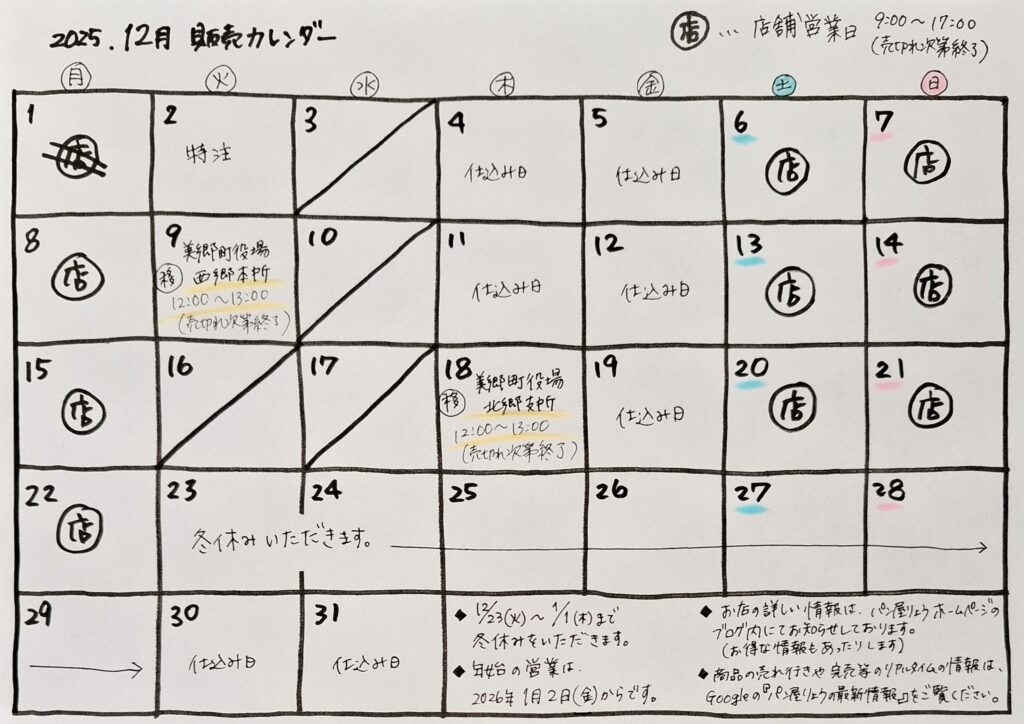 2025.12月 販売カレンダー
店 … 店舗営業日 9:00〜17:00
(売切れ次第終了)
月 火 水 木 金 土 日
1 2 3 4 5 6 7
店 特注 仕込み日 仕込み日 店 店
8 9 10 11 12 13 14
美郷町役場
移 西郷本所
店 12:00〜13:00 仕込み日 仕込み日 店 店
(売切れ次第終了)
15 16 17 18 19 20 21
美郷町役場
移 北郷支所
店 12:00〜13:00 仕込み日 店 店
(売切れ次第終了)
22 23 24 25 26 27 28
店 冬休みいただきます。
29 30 31
仕込み日 仕込み日
◆ 12/23(火)〜1/1(木)まで
冬休みをいただきます。
◆ 年始の営業は、
2026年1月2日(金)からです。
◆ お店の詳しい情報は、パン屋りょうホームページの
ブログ内にてお知らせしております。
(お得な情報もあったりします)
◆ 商品の売れ行きや完売等のリアルタイムの情報は、
Googleの『パン屋りょうの最新情報』をご覧ください。